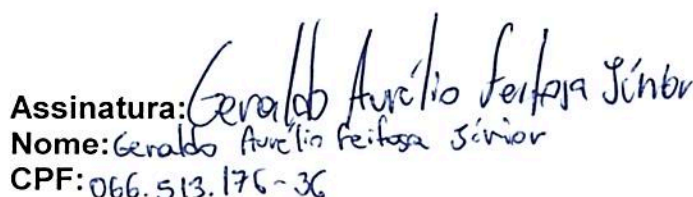 Assinatura: Geraldo Aurélio Feitosa Júnior
Nome: Geraldo Aurélio Feitosa Júnior
CPF: 066.513.176-36